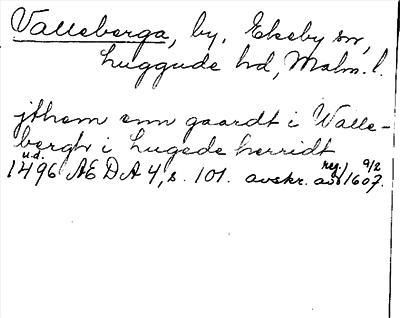 Valleberga, by, Ekeby sn,
Luggude hd, Malm. l.
jthem enn gaardt i Walle-
bergh i Lugede herridt
u.d.
1496 ÆDA 4, s. 101. avskr. av reg/ 9/2 1607.